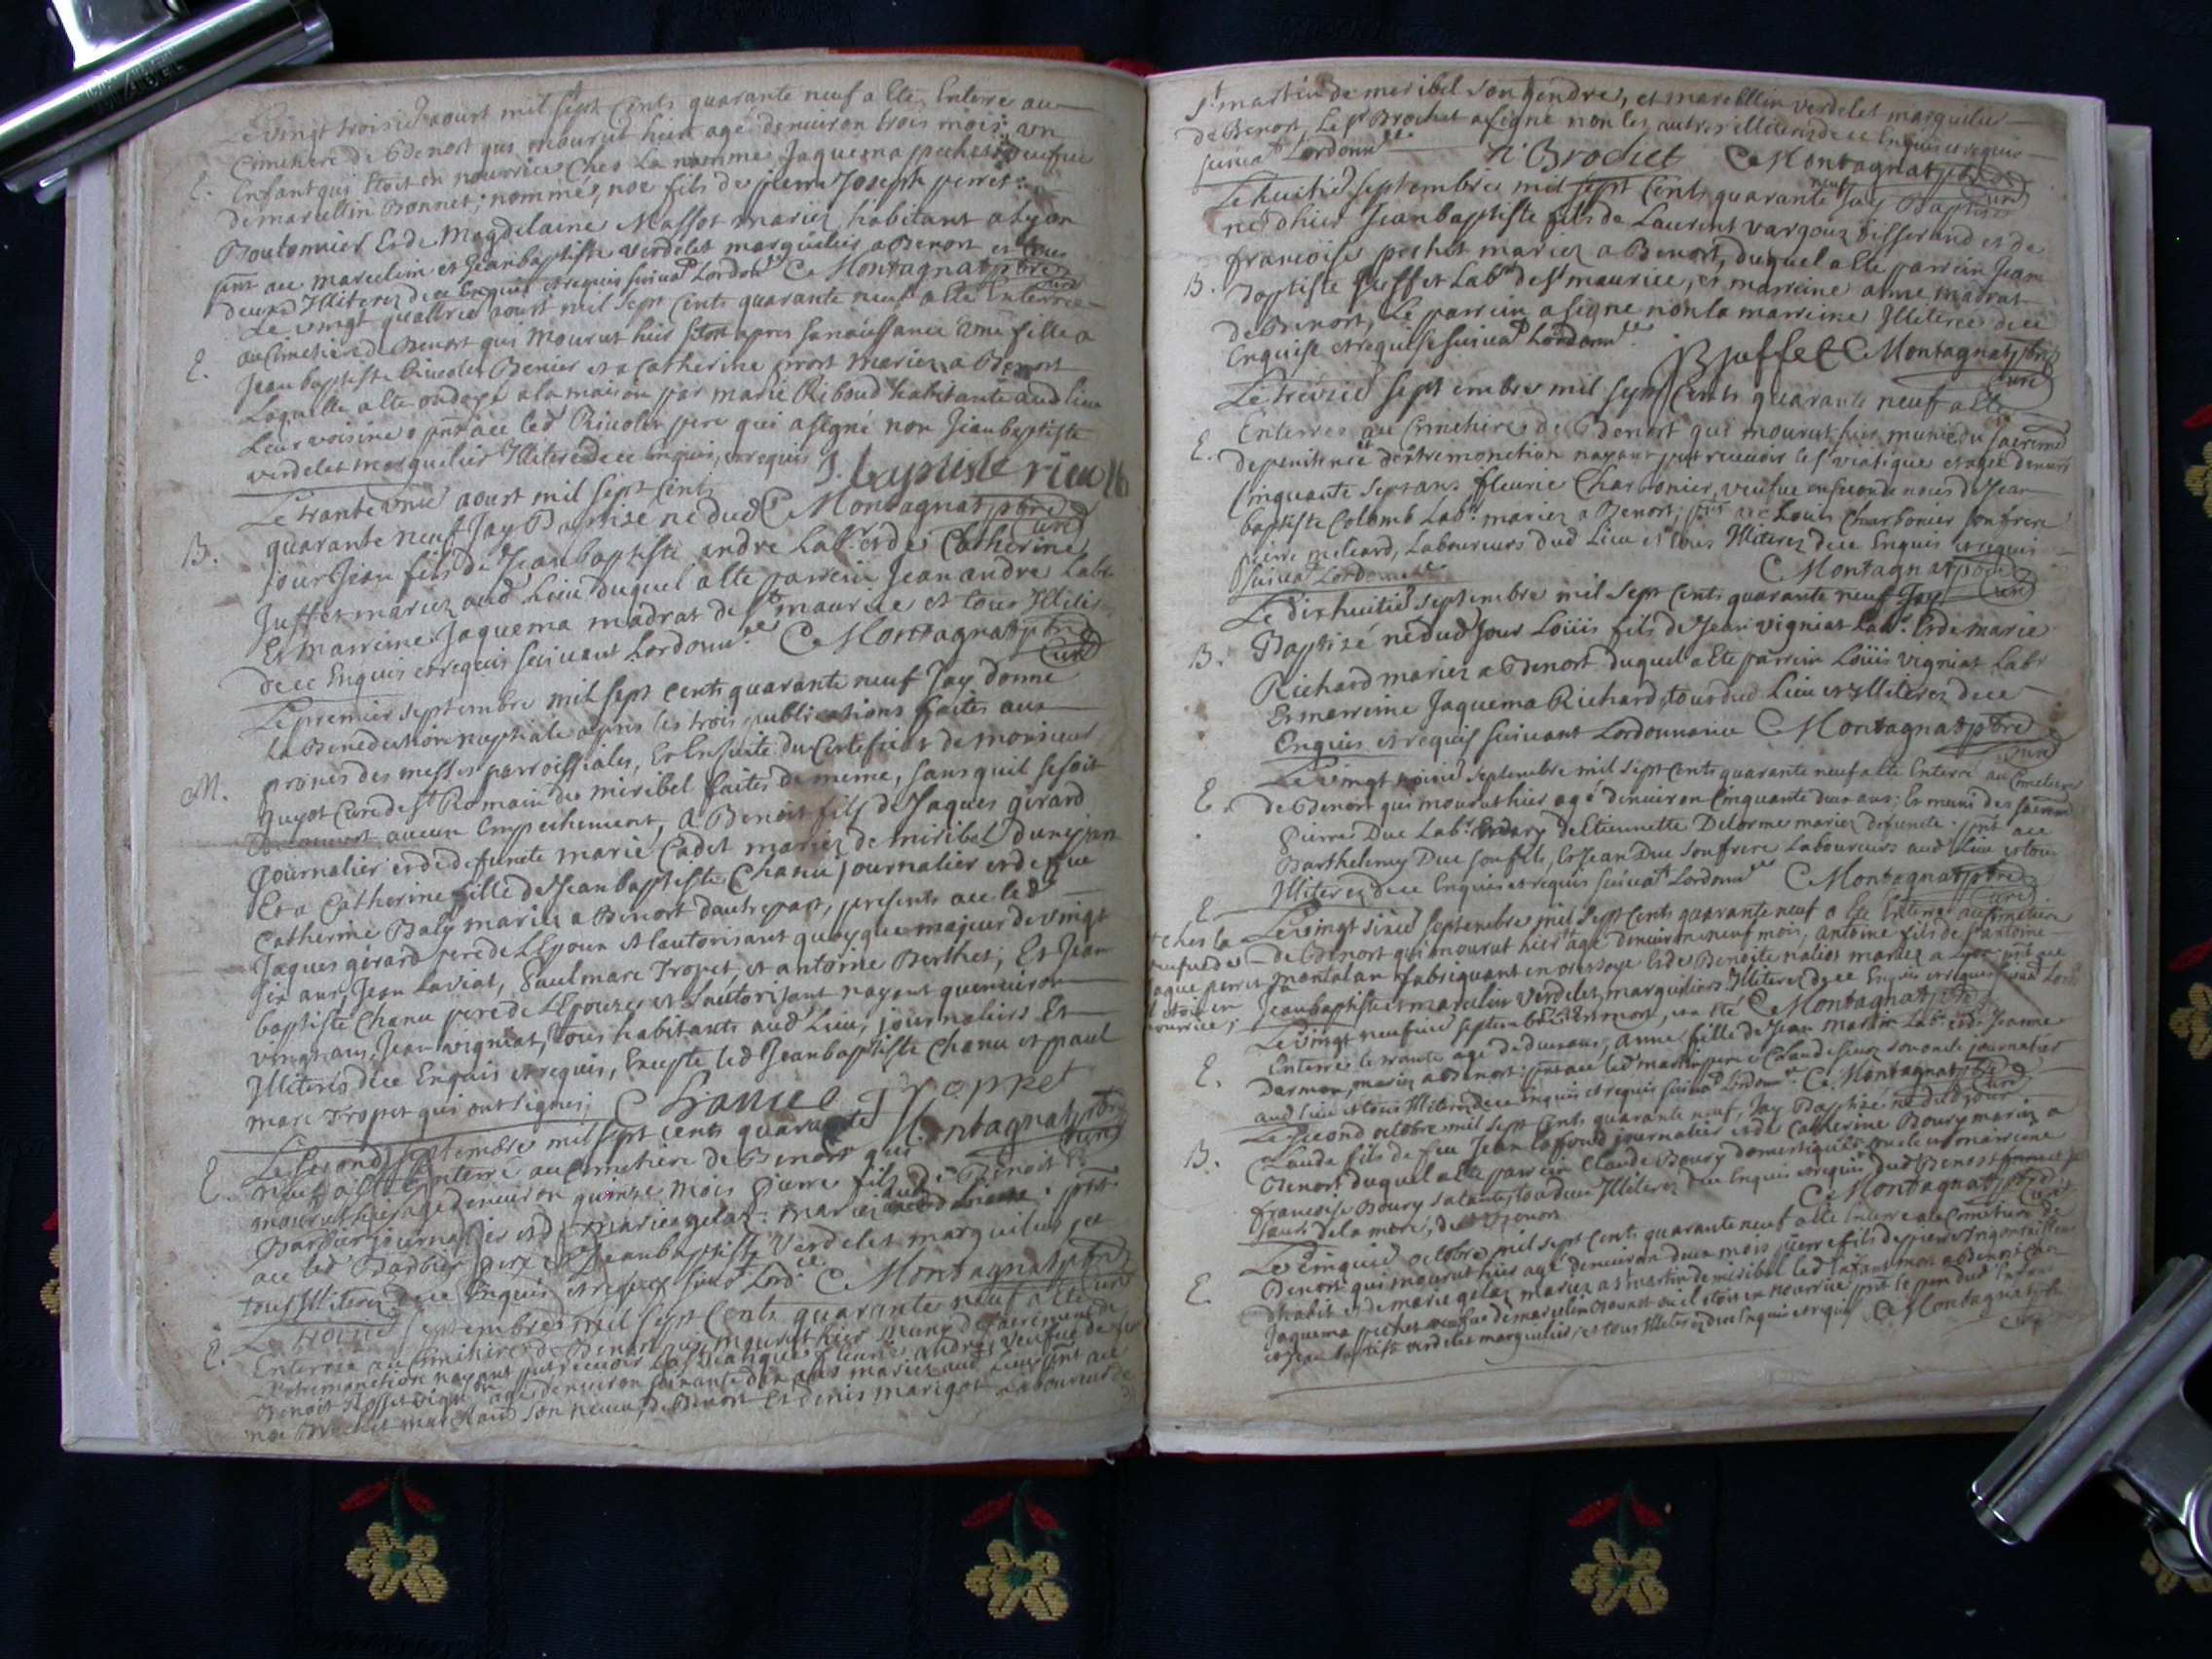 Le vingt troisie aoust mil sept cents quarante neuf a ete Enterre au
Cimetiere de Benost qui mourut hier agé denuiron trois mois un
E. Enfant qui etoit en nourrice Chez La nommée Jaquema pechet veufue
de marcellin Bonnet, nommé, noe fils de pierre Joseph perret
Boutonnier Et de Magdelaine Massot mariez habitant a Lyon
pnt ac marcelin et Jeanbaptiste verdelet marguilier a Benost et tous
deux Illiterez de ce Enquis et requis suiuat Lordonn C Montagnat ptre curé
Le vingt quattrie aoust mil sept cents quarante neuf a ete Enterree
E. au Cimetiere de Benost qui Mourut hier sitost apres sa naissance une fille a
Jean baptiste Rieucler Benier et a Catherine mariez a Benost
Laquelle a ete ondoyé a la maison par marie Riboud habitante aud lieu
Leur voisine pnt ace led pere qui a signé non Jeanbaptiste
verdelet marguilier Illiteré de ce enquis, et requis J. baptiste
Le trante unie aoust mil sept cents
quarante neuf Jay Baptise né dud C Montagnat ptre curé
B. jour Jean fils de Jeanbaptiste andre Labr. et de Catherine
Juffet mariez aud Lieu duquel a ete parrein Jean andre Labr
Et marreine Jaquema madrat de St maurice et tous Illiter
de ce Enquis et requis suiuant Lordonn.ce C Montagnat ptre curé
Le premier septembre mil sept cents quarante neuf Jay donné
La Benediction nuptiale apres les trois publications faites aux
M. prones des messes parroissiales, Et Ensuite du Certificat de monsieur
guyot Curé de St Romain de miribel faites de meme, sans quil se soit
decouvert aucun Empechement, A Benoit fils de Jaques girard
Journalier et de defuncte marie Cadet mariez de miribel dune part
Et a Catherine fille de Jeanbaptiste Chanu journalier et de feue
Catherine Baly mariez a Benost dautre part, presents ace led
Jaques girard pere de LEpoux et lautorisant quoyque majeur de vingt
six ans, Jean Laviat, Paul marc Tropet, et antoine Berthet, Et Jean
baptiste Chanu pere de LEpouze, et Lautorisant nayant quenuiron
vingt ans, Jean vigniat, tous habitants aud Lieu, journaliers Et
Illiterés de ce Enquis et requis, Excepté led Jeanbaptiste Chanu et paul
marc Tropet qui ont signés;
Le second septembre mil sept cents quarante Montagnat ptre curé
E. neuf a ete Enterré au Cimetiere de Benost qui
mourut hier agé denuiron quinze mois pierre fils de Benoit
Barbier journalier et de marie gelas mariez aud pnt
ace led Barbier pere Et Jeanbaptiste Verdelet marguilier et
tous Illiterez de ce Enquis et requis suiuat Lord.ce C Montagnat ptre curé
Le troisie septembre mil sept cents quarante neuf a ete
E. Enterrée au Cimetiere de Benost qui mourut hier munie du sacrement de
Lextremonction nayant put recevoir le st Viatique fleurie andre, veufue de feu
Benoit Rosset vigneron agé denuiron soixante dix ans mariez aud Lieu pnt ace
noe Brochet marchand son neveu, de Benost Et Denis marigot Laboureur de
St martin de meribel son gendre, et marcellin verdelet marguilier
de Benost, Le sr Brochet a signé non les autres illiterez de ce Enquis et requis
suiuat Lordonn.ce n Brochet C Montagnat ptre curé
Le huitie septembre mil sept cents quarante neuf Jay Baptisé
né dhier Jeanbaptiste fils de Laurent vargoux tisserand et de
francoise pechet mariez a Benost, duquel a ete parrein Jean
B. Baptiste Juffet Labr de St maurice, et marreine anne madrat
de Benost, Le parrein a signé non la marreine Illiterée de ce
Enquise et requise suiuat Lordonn.ce JB Juffet C Montagnat ptre curé
Le treizie septembre mil sept cents quarante neuf a ete
Enterrée au Cimetiere de Benost qui mourut hier munie du sacremt
E. de penitence et dextremonction nayant put recevoir le st viatique et agée denuir
Cinquante sept ans fleurie Charbonier, veufue en seconde noces de Jean
baptiste Colomb Labr. mariez a Benost, pnt ace Louis Charbonier son frere
pierre meleard, Laboureurs dud Lieu et tous Illiterez de ce Enquis et requis
suiuat Lordonn.ce C Montagnat ptre curé
Le dixhuitie septembre mil sept cents quarante neuf Jay
B. Baptizé né dud Jour Loüis fils de Jean vigniat Labr. Et de marie
Richard mariez a Benost duquel a ete parrein Loüis vigniat Labr
Et marreine Jaquema Richard, tous dud Lieu et Illiterez de ce
Enquis et requis suiuant Lordonnance C Montagnat ptre curé
Le vingt septembre mil sept cents quarante neuf a ete Enterré au Cimetiere
E. de Benost qui mourut hier agé denuiron Cinquante deux ans; Et muni des sacrem
Pierre Duc Labr. de Etiennette Delorme mariez defuncte. pnt ace
Barthelemy Duc son fils, Et Jean Duc son frere Laboureurs aud Lieu et tous
Illiterez de ce Enquis et requis suiuat Lordonn.ce C Montagnat ptre curé
E. Le vingt sixie septembre mil sept cents quarante neuf a ete Enterré au Cimetiere
chez la
veufue de
jaque perret
il etoit en
nourrice;
de Benost qui mourut hier agé denuiron neuf mois, antoine fils de antoine
montalan fabriquant en Et de Benoite nalios mariez a Lyon pnt ace
Jeanbaptiste et marcelin verdelet marguiliers Illiterez de ce Enquis et requis suiuat Lord
Le vingt neufuie septembre est mort, et a eté C Montagnat ptre
E. Enterrée le trante agé de deux ans, anne fille de Jean martin Labr. et de Jeanne
Dermon, mariez a Benost: pnt ace led martin pere et Claude son oncle journalier
aud Lieu et tous Illiterez de ce Enquis et requis suiuat Lordonn.ce C. Montagnat ptre curé
Le second octobre mil sept cents quarante neuf, Jay Baptisé né dud jour
B. Claude fils de feu Jean lafond journalier et de Catherine Boury mariez a
Benost duquel a ete parrein Claude Boury domestique son oncle et marreine
francoise Boury sa tante, tous deux Illiterez de ce Enquis et requis dud Benost
soeur de la mere, de Benost C Montagnat ptre curé
Le Cinquie octobre mil sept cents quarante neuf a ete Enterré au Cimetiere de
E. Benost qui mourut hier agé denuiron deux mois pierre fils de pierre tailleur
dhabit et de marie gelas mariez a St martin de miribel led Enfant mort a Benost chez
Jaquema pechet veufue de marcelin Bonnet ou il etoit en nourrice pnt le pere dud Enfan
et Jean baptiste verdelet marguilier, et tous Illiterez de ce Enquis et requis C Montagnat ptre
curé